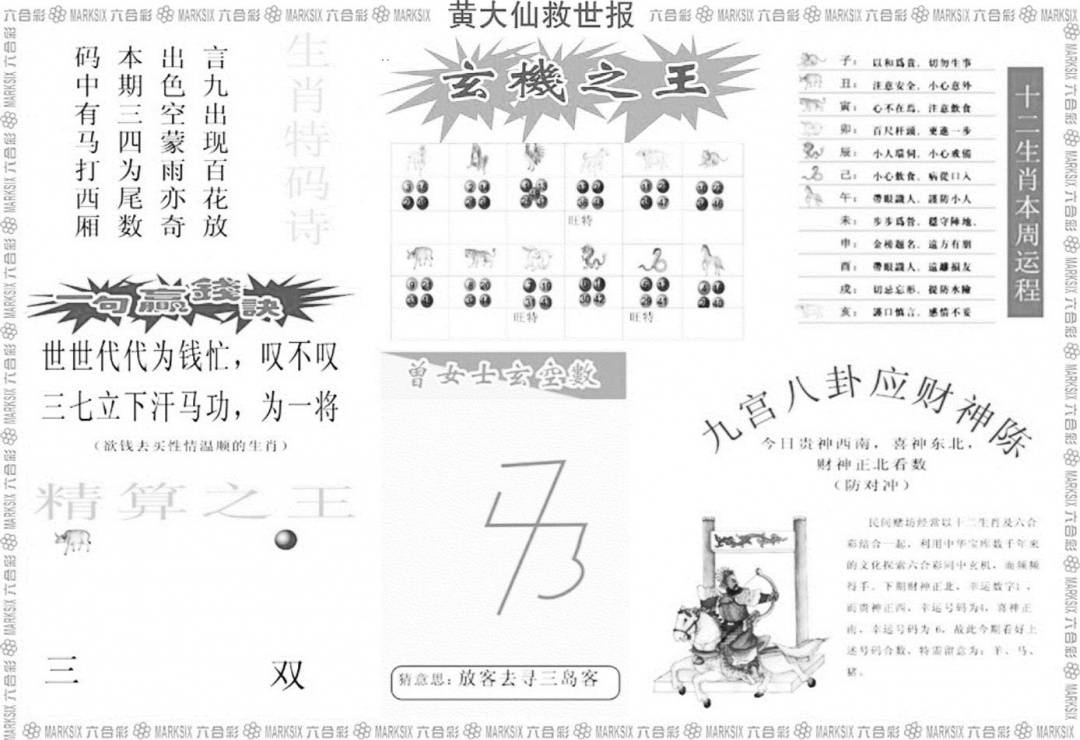 六合彩 MARKSIX 六合彩 MARKSIX 六合彩 MARKSIX 六合彩 MARKSIX
黄大仙救世报
六合彩 MARKSIX 六合彩 MARKSIX 六合彩 MARKSIX 六合彩 MARKSIX
生肖特码诗
言九出现百花放
出色空蒙雨亦奇
本期三四为尾数
码中有马打西厢
一句赢錢訣
世世代代为钱忙，叹不叹
三七立下汗马功，为一将
（欲钱去买性情温顺的生肖）
精算之王
三 双
玄機之王
旺特
旺特 旺特
曾女士玄空數
猜意思：放客去寻三岛客
十二生肖本周运程
子：以和爲貴，切勿生事
丑：注意安全，小心意外
寅：心不在焉，注意飲食
卯：百尺杆頭，更進一步
辰：小人環伺，小心戒備
己：小心飲食，病從口入
午：帶眼識人，謹防小人
未：步步爲營，穩守陣地。
申：金榜題名，遠方有朋
酉：帶眼識人，遠離損友
戌：切忌忘形，提防水險
亥：謹口慎言，感情不妥
九宫八卦应财神陈
今日贵神西南，喜神东北，
财神正北看数
（防对冲）
民间赌坊经常以十二生肖及六合
彩结合一起，利用中华宝库数千年来
的文化探索六合彩同中玄机，而频频
得手。下期财神正北，幸运数字1，
而贵神正西，幸运号码为4，喜神正
南，幸运号码为 6，故此今期看好上
述号码合数，特需留意为：羊、马、
猪。
MARKSIX 六合彩 MARKSIX 六合彩 MARKSIX 六合彩 MARKSIX 六合彩 MARKSIX 六合彩 MARKSIX 六合彩 MARKSIX 六合彩 MARKSIX 六合彩 MARKSIX 六合彩